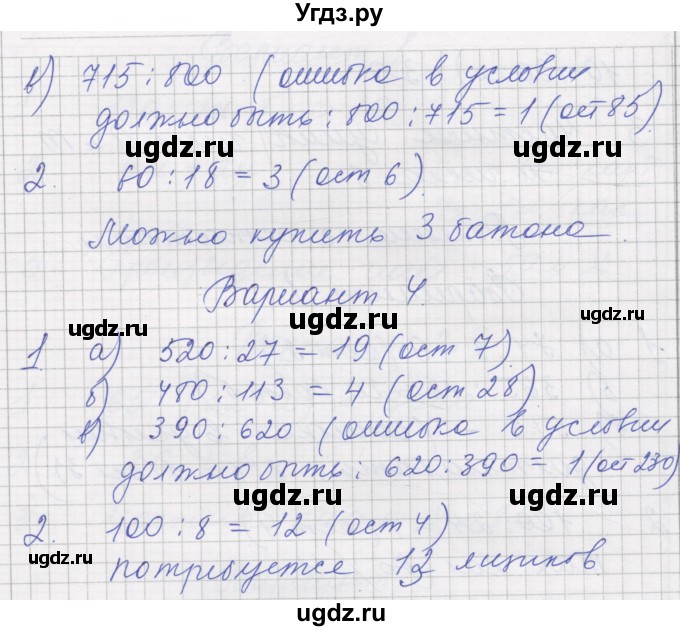 Угдз.ру
в) 715 : 800 (ошибка в условии
должно быть : 800 : 715 = 1 (ост 85)
ugdz.ru ugdz.ru
2. 60 : 18 = 3 (ост 6)
Можно купить 3 батона
Вариант 4.
ugdz.ru ugdz.ru ugdz.ru
1. а) 520 : 27 = 19 (ост 7)
б) 480 : 113 = 4 (ост 28)
в) 390 : 620 (ошибка в условии
должно быть : 620 : 390 = 1 (ост 230)
ugdz.ru ugdz.ru
2. 100 : 8 = 12 (ост 4)
ugdz.ru ugdz.ru ugdz.ru
потребуется 13 ящиков
ugdz.ru